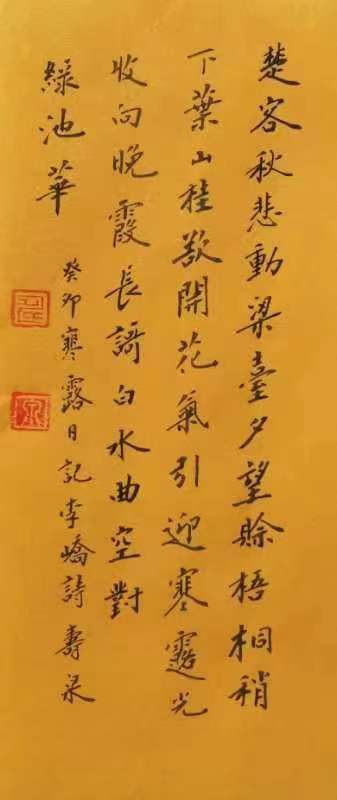 楚客秋悲動梁臺夕望賒梧桐稍
下葉山桂欲開花氣引迎寒露光
收向晚霞長謌白水曲空對
綠池華
癸卯寒露日記李嶠詩壽泉